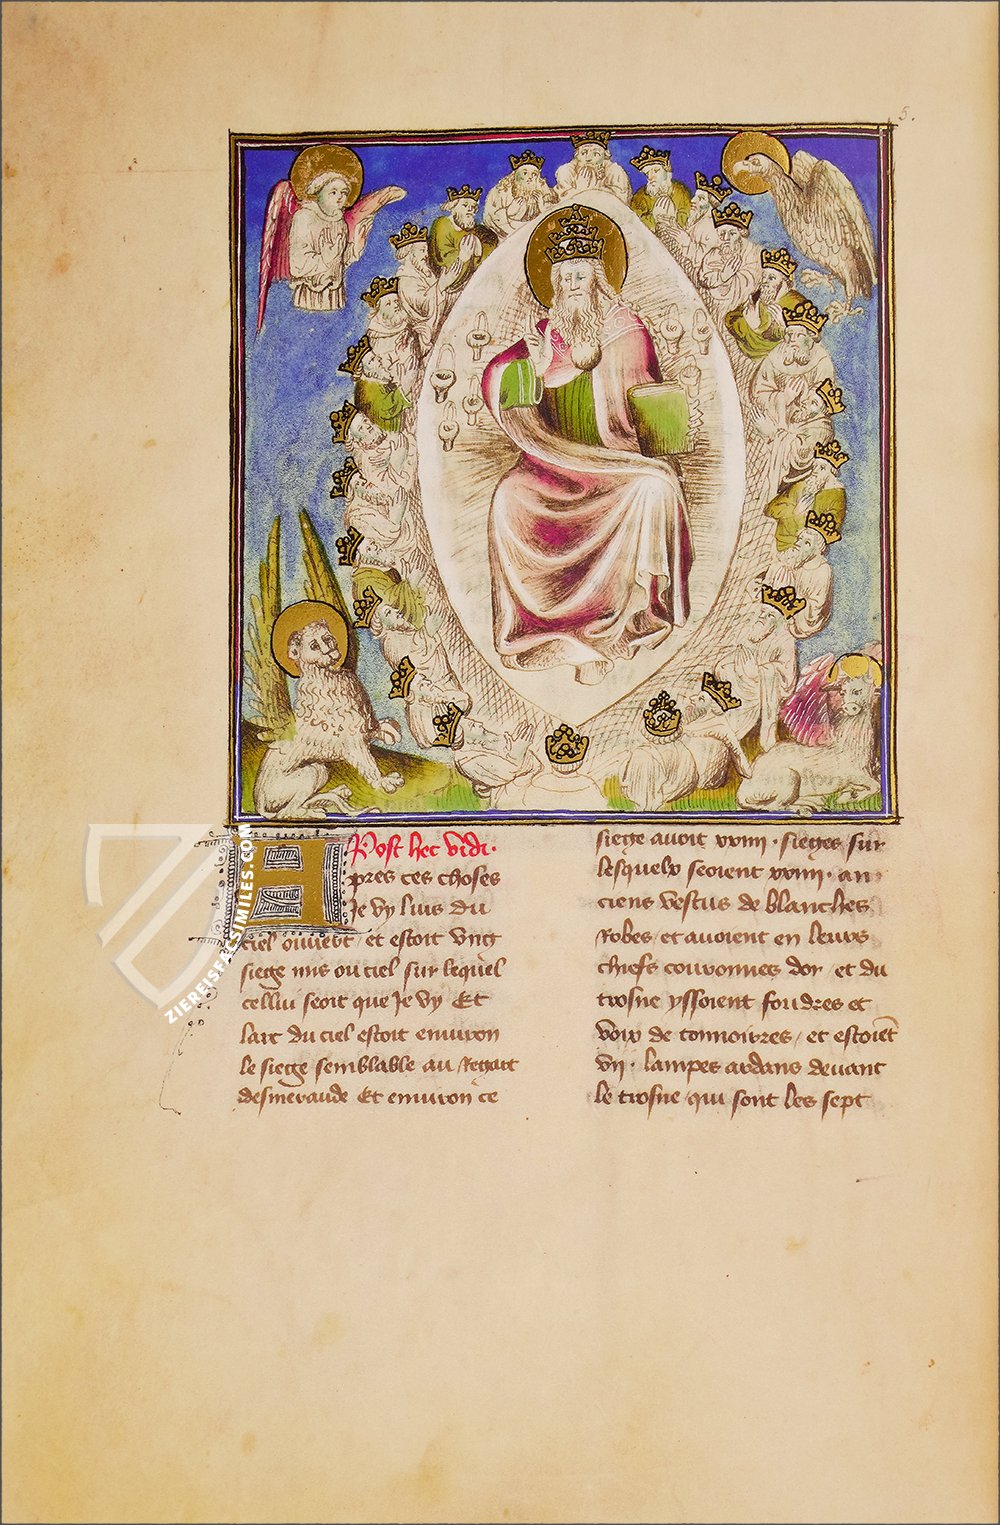 5.
Post hec vidi.
Apres ces choses
Je vy luis du
ciel ouuert / et estoit vng
siege mis ou ciel sur lequel
cellui seoit que Je vy Et
larc du ciel estoit enuiron
le siege semblable au regart
desmeraude Et enuiron ce
siege auoit xxiiii · sieges sur
lesquelx seoient xxiiii · an
ciens vestus de blanches
Robes / et auoient en leurs
chiefs couronnes dor / et du
trosne yssoient fouldres et
voix de tonnoirres / et estoiēt
vii · lampes ardans deuant
le trosne / qui sont les sept
ZIEREISFACSIMILES.COM